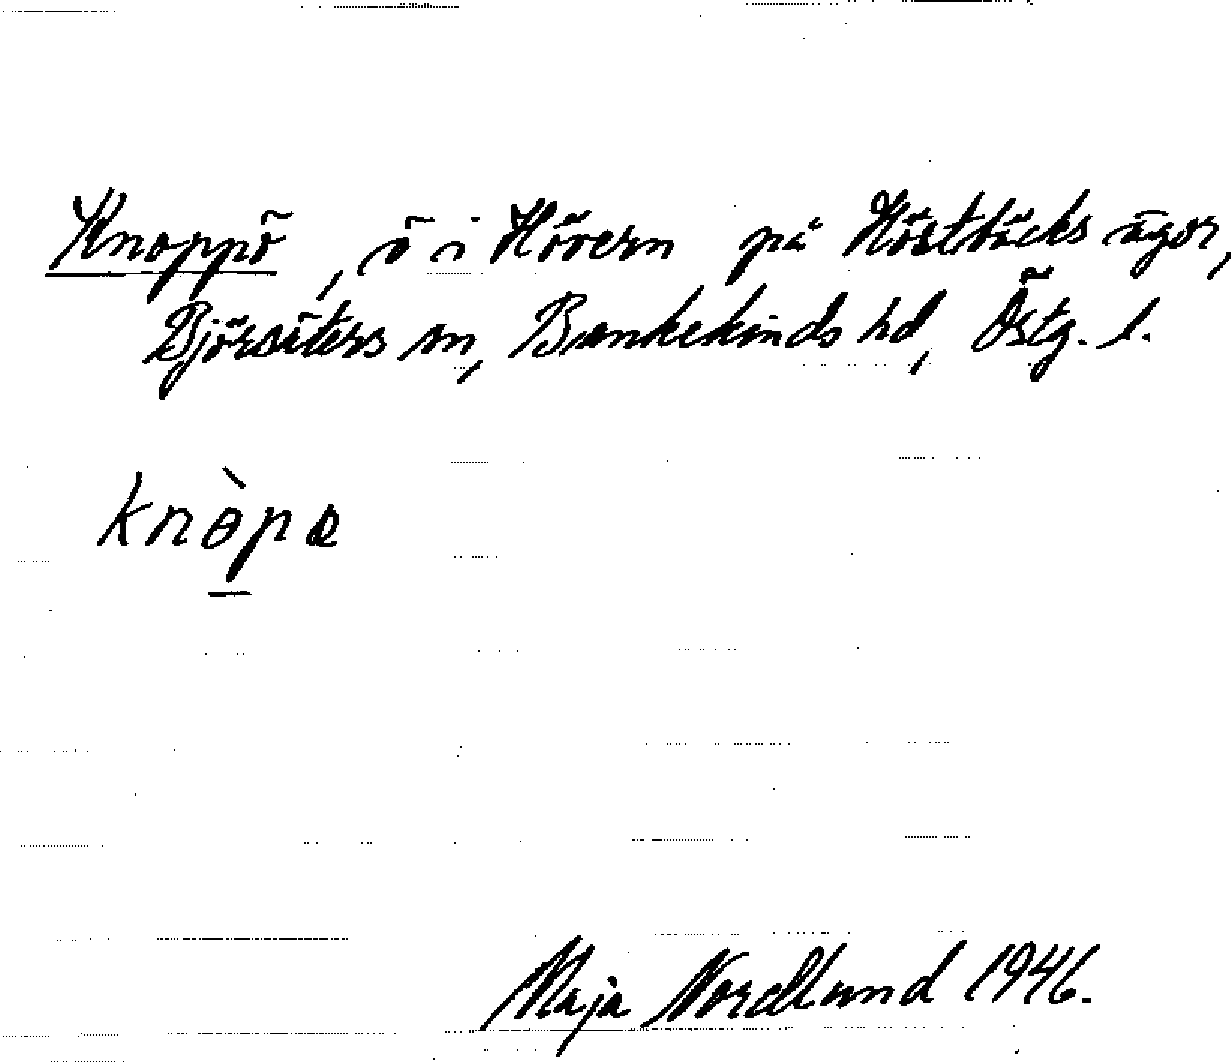 Knoppö, ö i Hövern på Höstbäcks ägor,
Björsäters sn, Bankekinds hd, Östg. l.
knɵ̀pə
Maja Nordlund 1946.